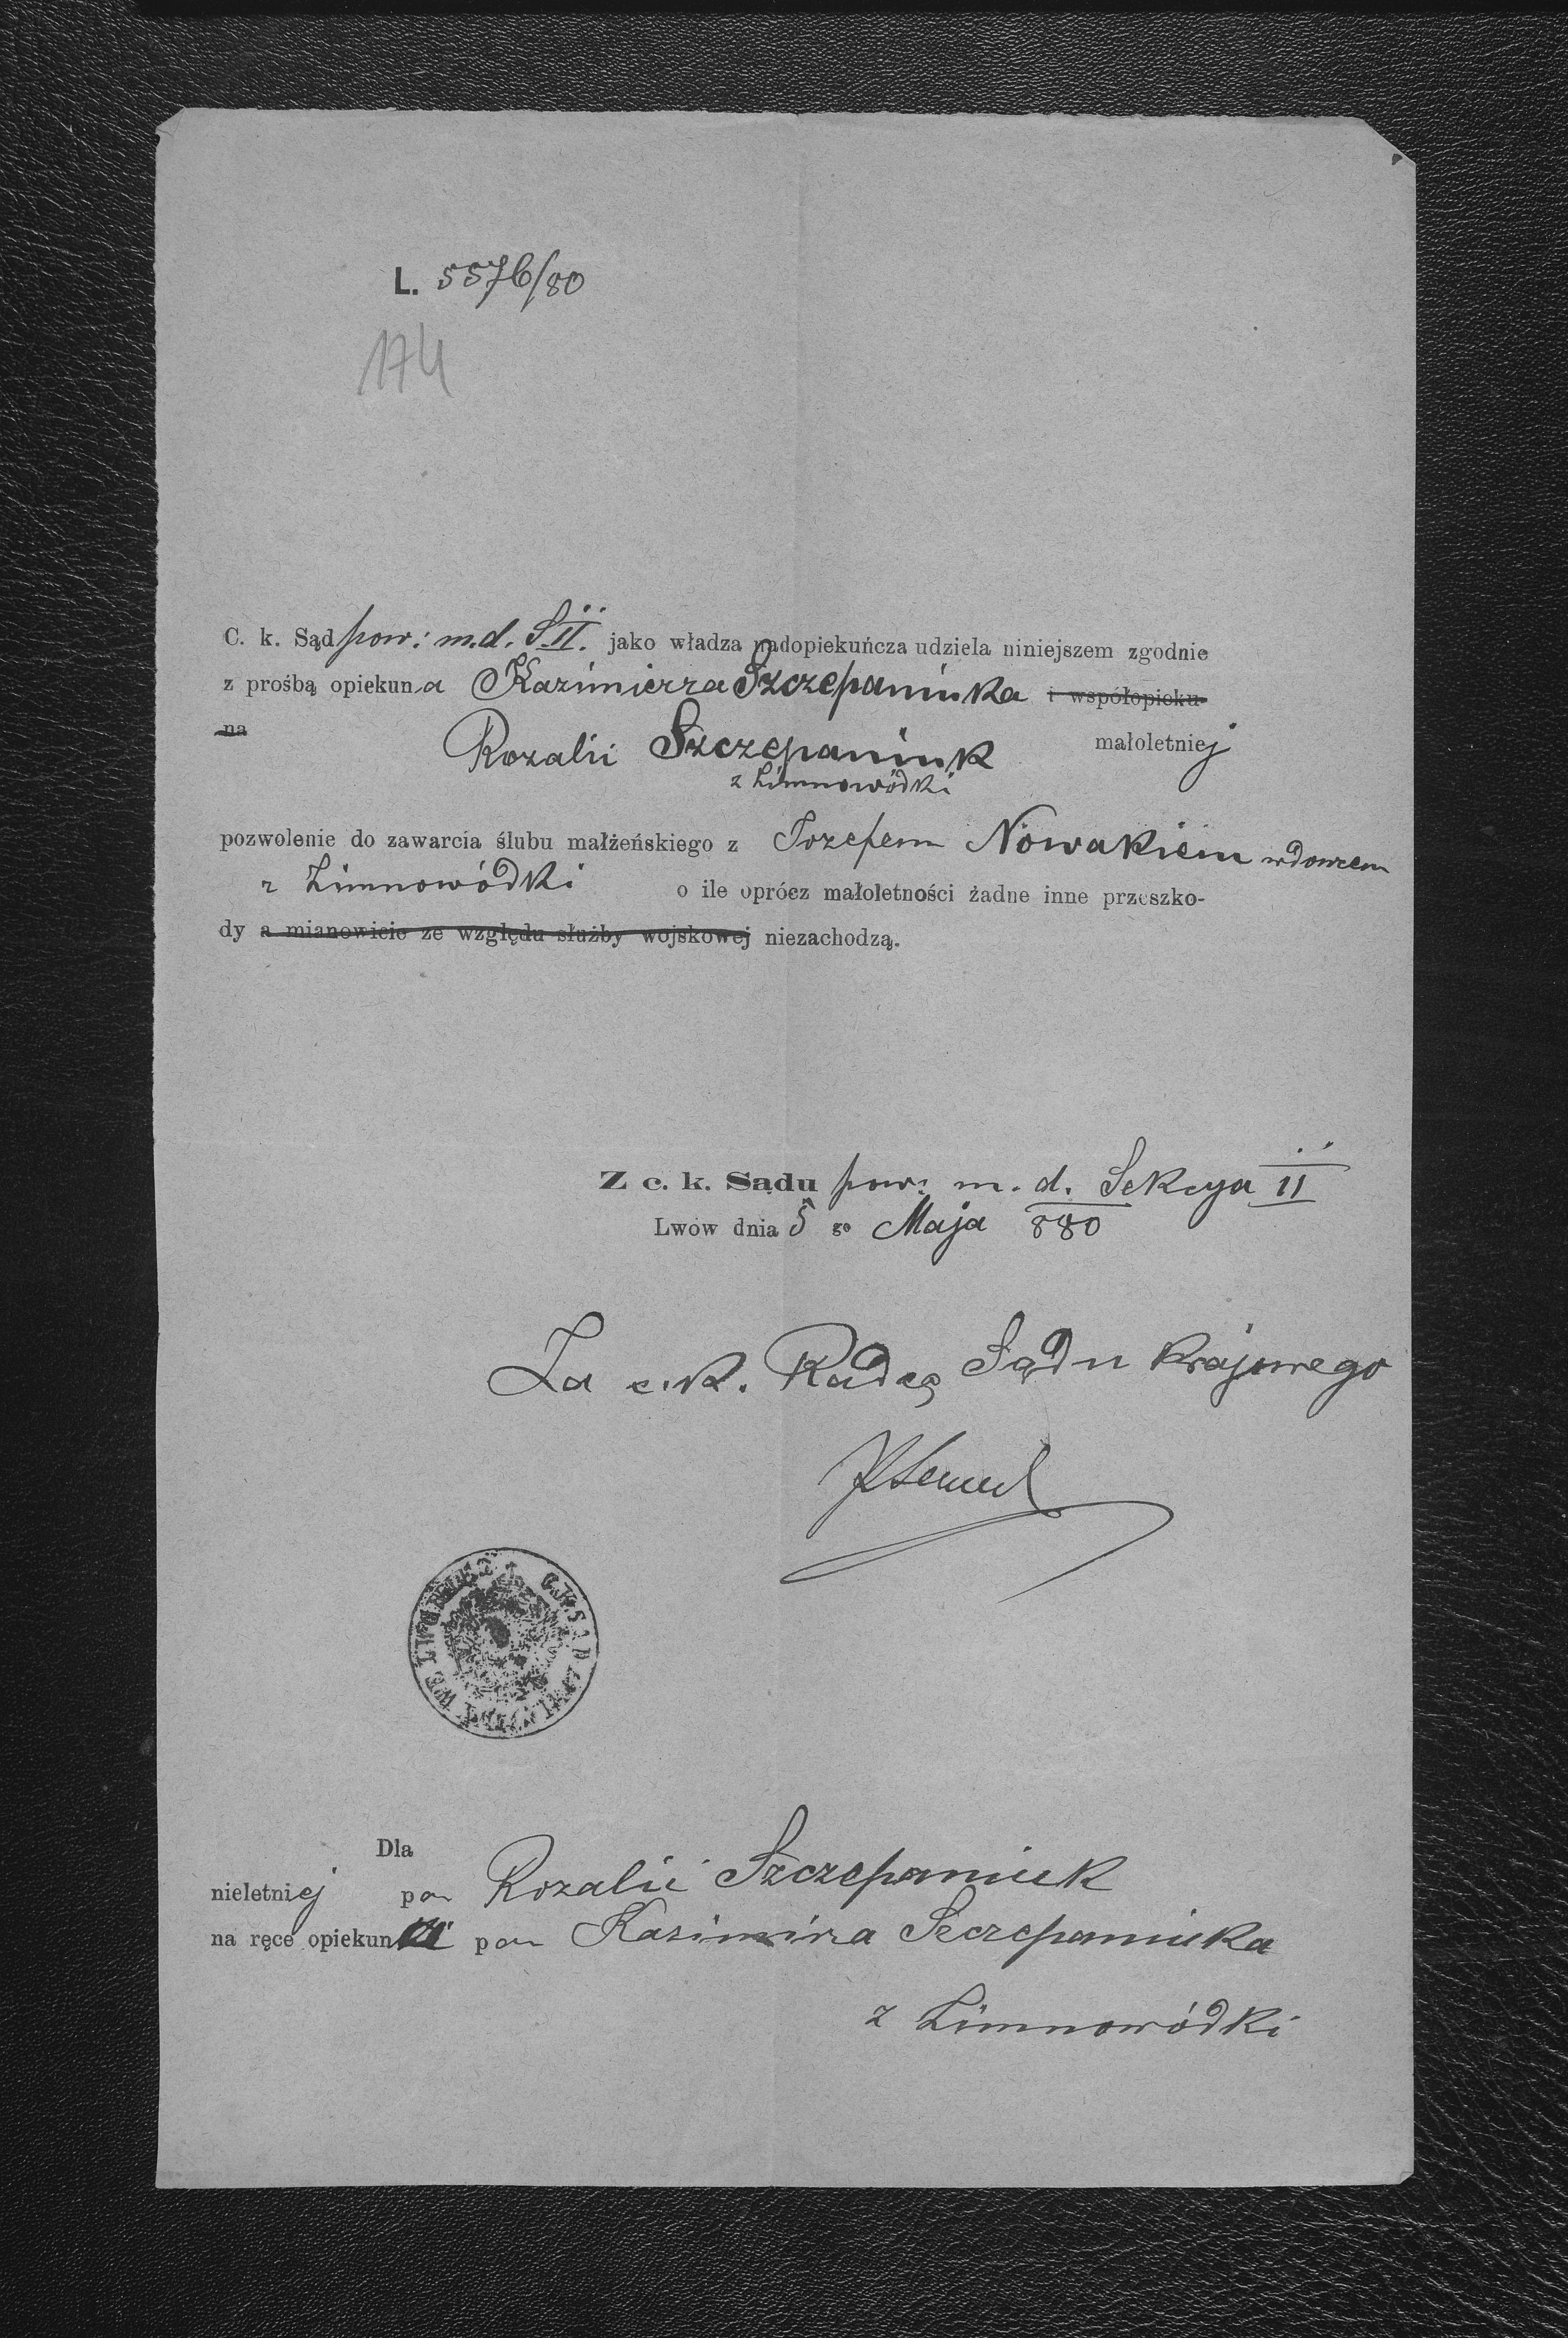 L. 5576/80
174
C. k. Sąd pow: m. d. S. II. jako władza nadopiekuńcza udziela niniejszem zgodnie
z prośbą opiekuna Kazimierza Szczepaniuka i współopieku-
na Rozalii Szczepaniuk małoletniej
z Zimnowódki
pozwolenie do zawarcia ślubu małżeńskiego z Józefem Nowakiem wdowcem
z Zimnowódki o ile oprócz małoletności żadne inne przeszko-
dy a mianowicie ze względu służby wojskowej niezachodzą.
Z c. k. Sądu pow: m. d. Sekcya II
Lwów dnia 5 go Maja 880
Za c. k. Radcę Sądu krajowego
C. K. SĄD WE LWOWIE
Dla
nieletniej pa Rozalii Szczepaniuk
na ręce opiekuna pa Kazimira Szczepaniuka
z Zimnowódki